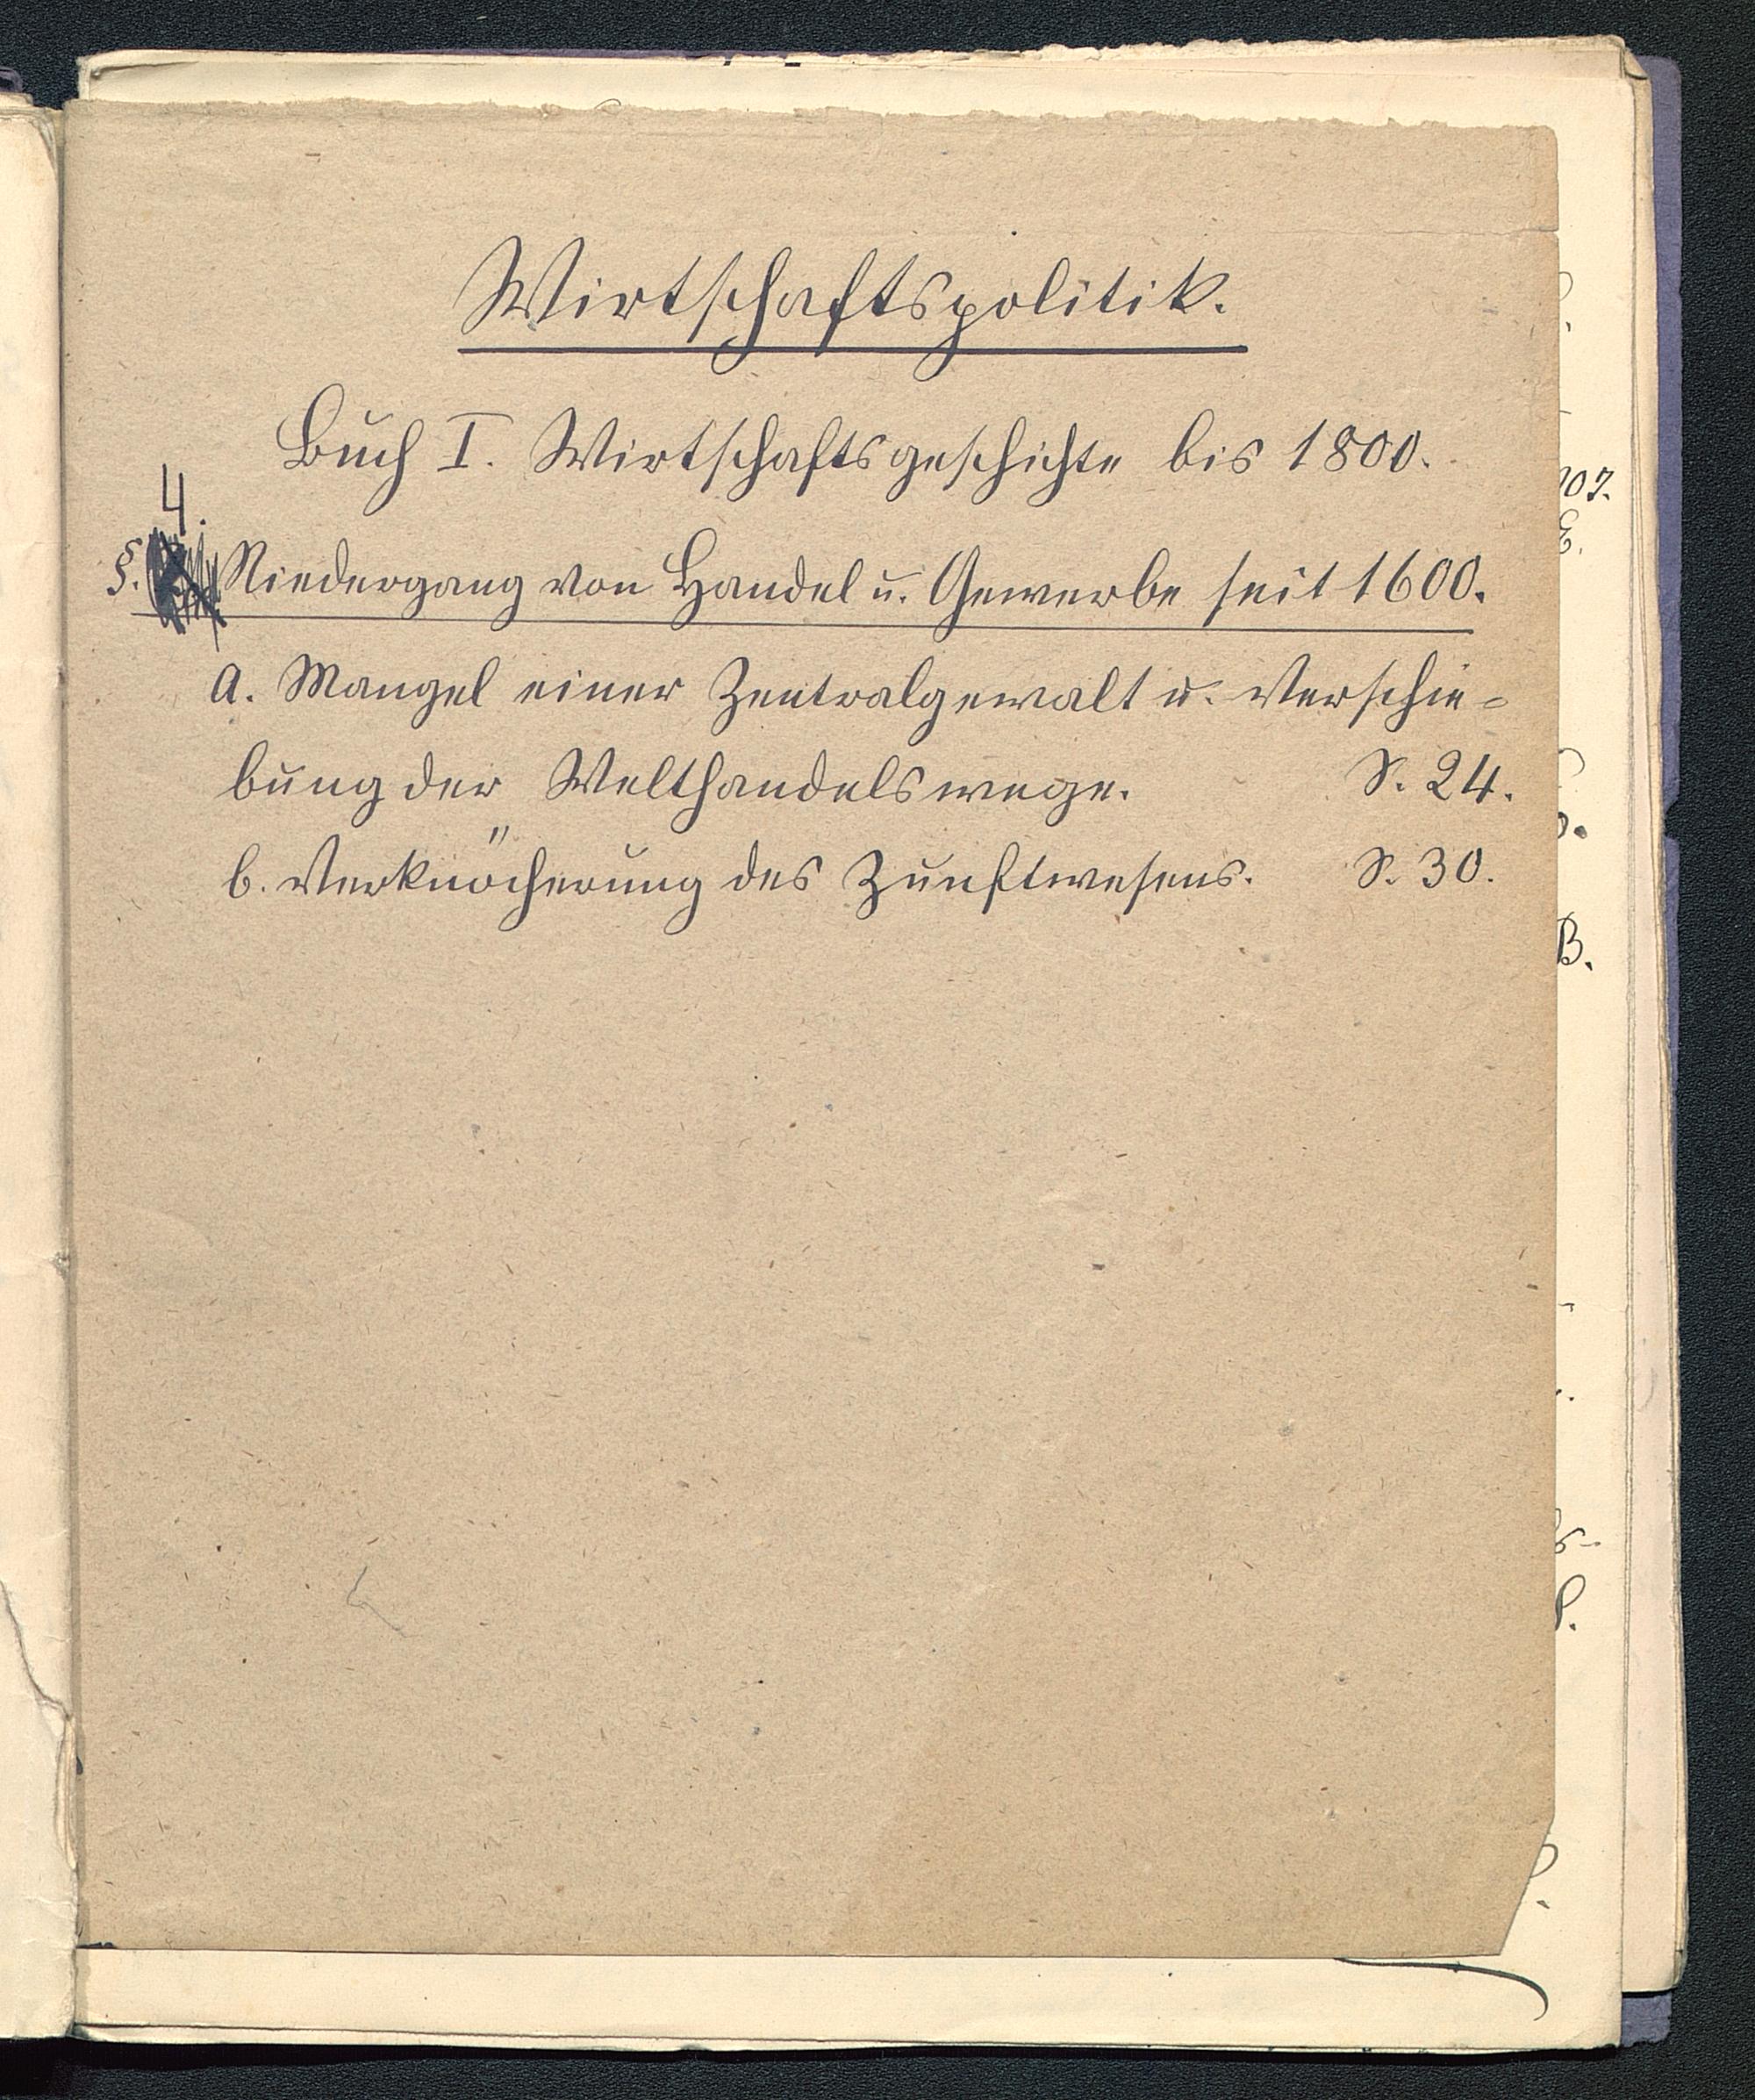 Wirtschaftspolitik.
Buch I. Wirtschaftsgeschichte bis 1800.
4.
§. Niedergang von Handel u. Gewerbe seit 1600.
a. Mangel einer Zentralgewalt u. Verschie-
bung der Welthandelswege. S. 24.
b. Verknöcherung des Zunftwesens. S. 30.